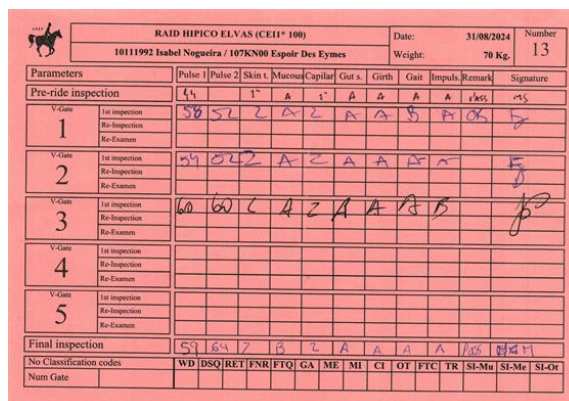 RAID HIPICO ELVAS (CEI1* 100) Date: 31/08/2024 Number
10111992 Isabel Nogueira / 107KN00 Espoir Des Eymes Weight: 70 Kg. 13
Parameters Pulse 1 Pulse 2 Skin t. Mucous Capilar Gut s. Girth Gait Impuls. Remark Signature
Pre-ride inspection 44 1" A 1" A A A A PASS MS
V-Gate 1 1st inspection 58 52 2 A 2 A A B A OK
Re-Inspection
Re-Examen
V-Gate 2 1st inspection 59 52 2 A 2 A A A A
Re-Inspection
Re-Examen
V-Gate 3 1st inspection 60 60 2 A 2 A A A B
Re-Inspection
Re-Examen
V-Gate 4 1st inspection
Re-Inspection
Re-Examen
V-Gate 5 1st inspection
Re-Inspection
Re-Examen
Final inspection 59 64 2 B 2 A A A A
No Classification codes WD DSQ RET FNR FTQ GA ME MI CI OT FTC TR SI-Mu SI-Me SI-Ot
Num Gate